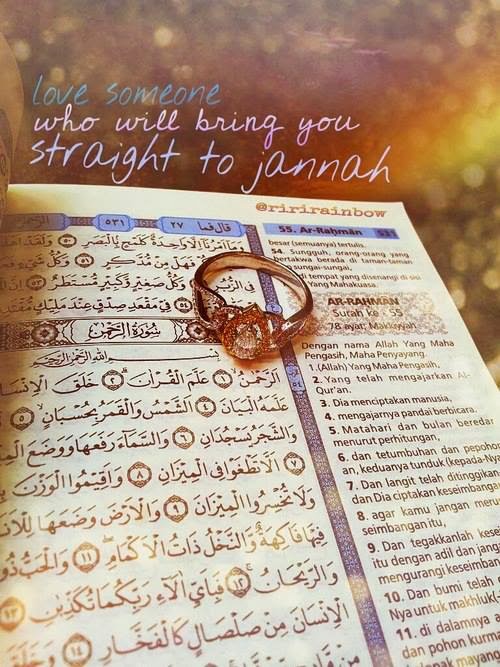 love someone
who will bring you
straight to jannah
@ririrainbow
قال فما ٢٧
٥٣١
وَمَا أَمْرُنَا إِلَّا وَاحِدَةٌ كَلَمْحٍ بِالْبَصَرِ ٥٠
فَهَلْ مِن مُّدَّكِرٍ ٥١ وَكُلُّ
فِي الزُّبُرِ وَكُلُّ صَغِيرٍ وَكَبِيرٍ مُّسْتَطَرٌ ٥٣
فِي مَقْعَدِ صِدْقٍ عِندَ مَلِيكٍ
سُورَةُ الرَّحْمٰنِ
بِسْمِ اللَّهِ الرَّحْمٰنِ الرَّحِيمِ
الرَّحْمٰنُ ١ عَلَّمَ الْقُرْآنَ ٢ خَلَقَ الْإِنسَا
عَلَّمَهُ الْبَيَانَ ٤ الشَّمْسُ وَالْقَمَرُ بِحُسْبَانٍ ٥
وَالشَّجَرُ يَسْجُدَانِ ٦ وَالسَّمَاءَ رَفَعَهَا وَوَضَعَ
٧ أَلَّا تَطْغَوْا فِي الْمِيزَانِ ٨ وَأَقِيمُوا الْوَزْنَ
وَلَا تُخْسِرُوا الْمِيزَانَ ٩ وَالْأَرْضَ وَضَعَهَا لِلْأَنَا
فِيهَا فَاكِهَةٌ وَالنَّخْلُ ذَاتُ الْأَكْمَامِ ١١ وَالْحَبُّ ذُو
وَالرَّيْحَانُ ١٢ فَبِأَيِّ آلَاءِ رَبِّكُمَا تُكَذِّبَانِ ١٣
الْإِنسَانَ مِن صَلْصَالٍ كَالْفَخَّارِ ١٤ وَخَلَقَ
55. Ar-Raḥmān 531
besar (semuanya) tertulis.
54. Sungguh, orang-orang yang
bertakwa berada di taman-taman
sungai-sungai,
di tempat yang disenangi di sisi
Yang Mahakuasa.
AR-RAḤMĀN
Surah ke - 55
78 ayat, Makkiyyah
Dengan nama Allah Yang Maha
Pengasih, Maha Penyayang.
1. (Allah) Yang Maha Pengasih,
2. Yang telah mengajarkan Al-
Qur'an.
3. Dia menciptakan manusia,
4. mengajarnya pandai berbicara.
5. Matahari dan bulan beredar
menurut perhitungan,
6. dan tetumbuhan dan pepohon
an, keduanya tunduk (kepada-Nya
7. Dan langit telah ditinggikan
dan Dia ciptakan keseimbangan
8. agar kamu jangan merus
seimbangan itu,
9. Dan tegakkanlah kese
itu dengan adil dan jang
mengurangi keseimban
10. Dan bumi telah
Nya untuk makhluk-
11. di dalamnya a
dan pohon kurma
mayang